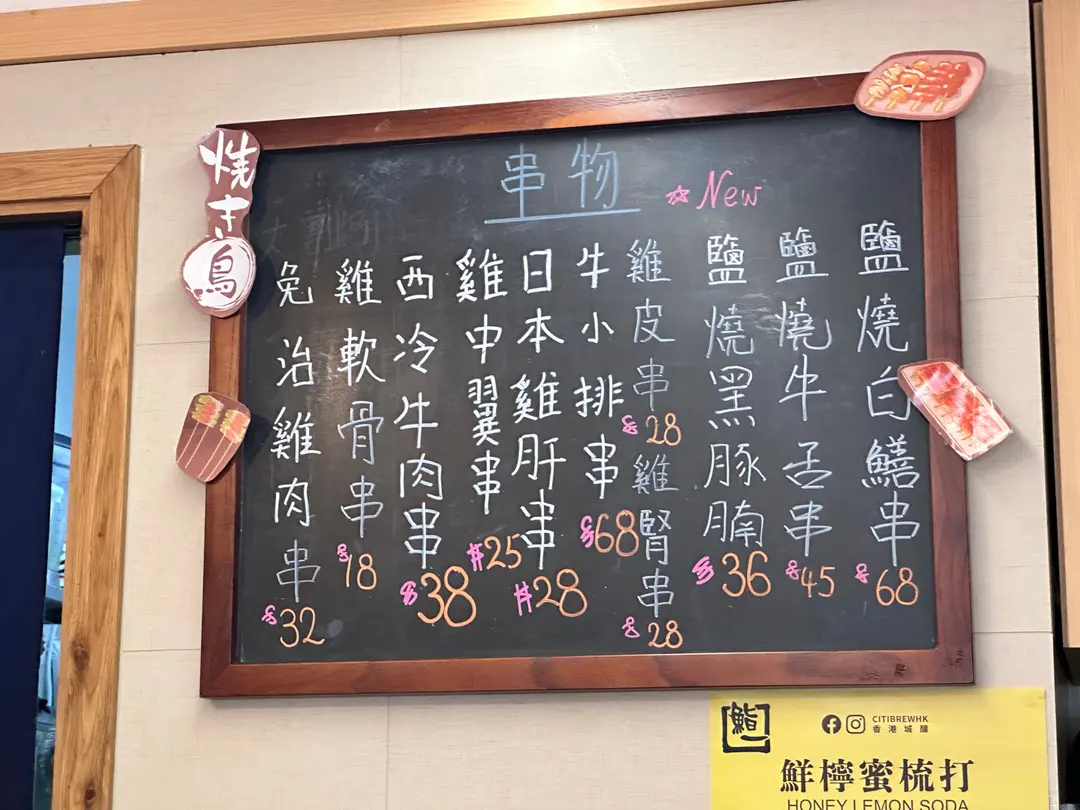 串物
☆New
鹽燒白鱔串
$68
鹽燒牛舌串
$45
鹽燒黑豚腩
$36
雞皮串
$28
雞腎串
$28
牛小排串
$68
日本雞肝串
$28
雞中翼串
$25
西冷牛肉串
$38
雞軟骨串
$18
免治雞肉串
$32
焼き鳥
鮨一
CITIBREWHK
香港城釀
鮮檸蜜梳打
HONEY LEMON SODA